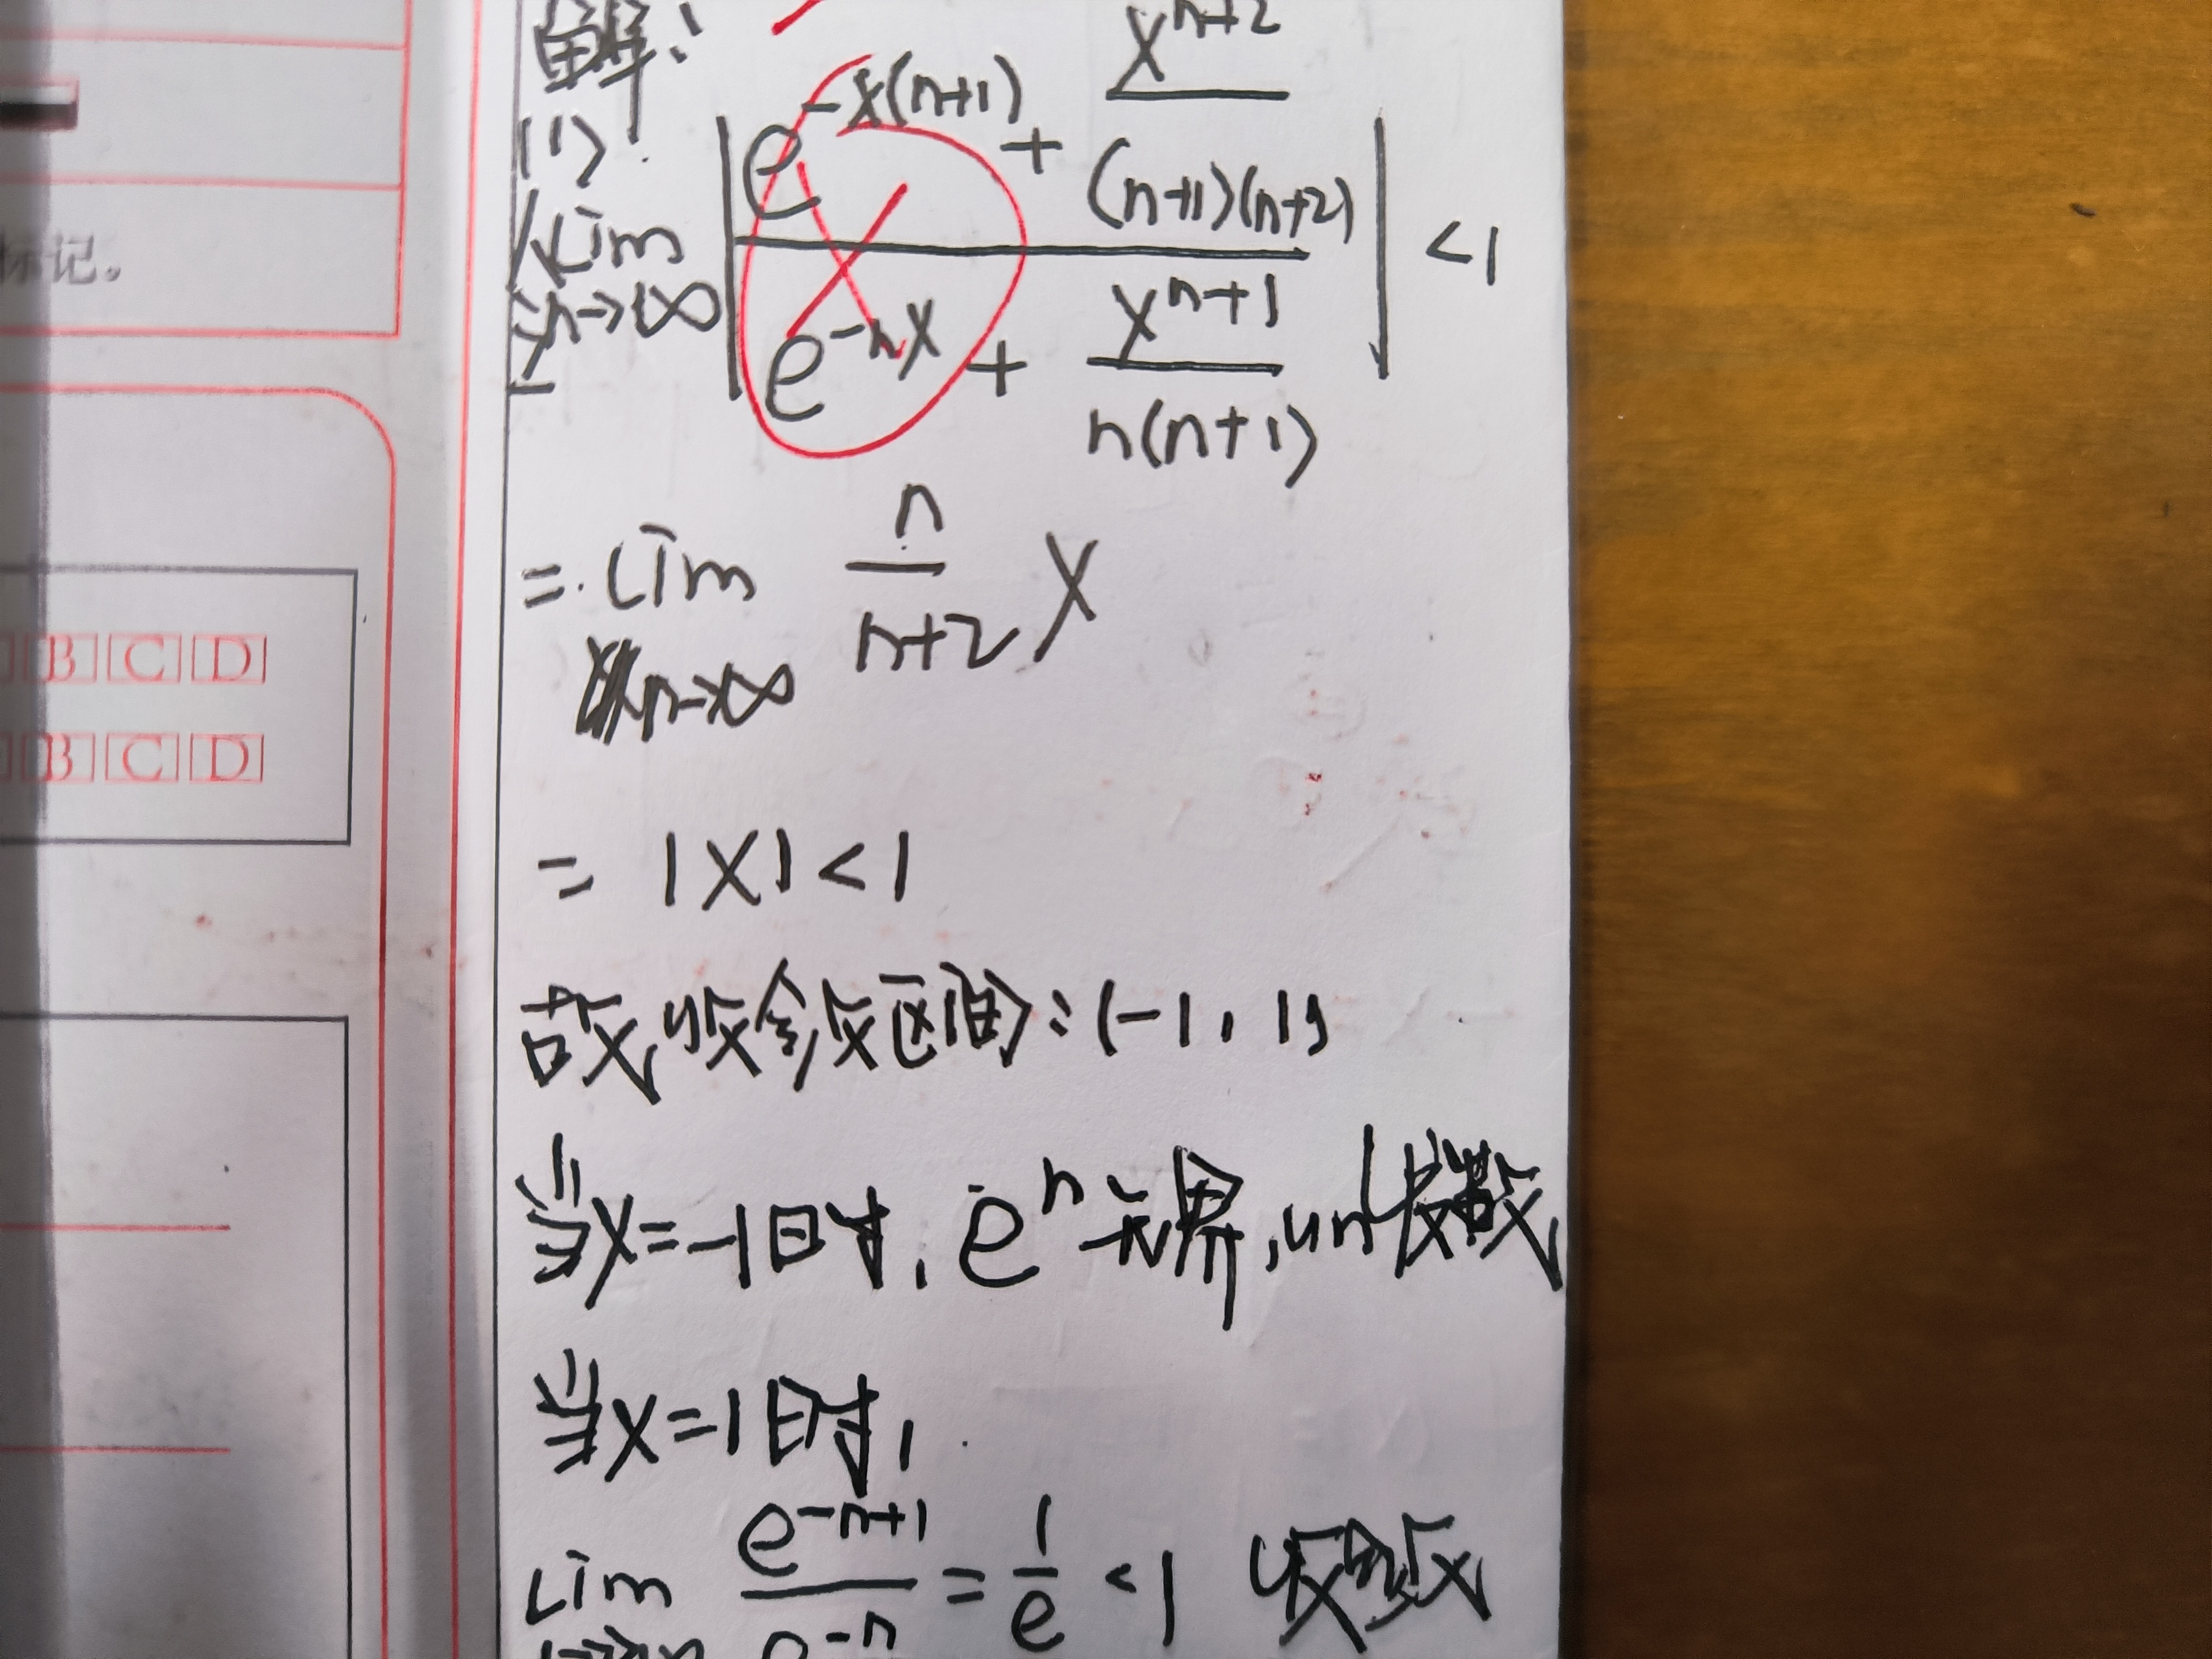 解:
(1)
lim n→∞ | (e^{-x(n+1)} + x^{n+2}/((n+1)(n+2))) / (e^{-nx} + x^{n+1}/(n(n+1))) | < 1
= lim n→∞ n/(n+2) x
= |x| < 1
故,收敛区间:(-1,1)
当x=-1时,e^n无界,un发散
当x=1时,
lim e^{-n+1}/e^{-n} = 1/e < 1 收敛
标记。
B C D
B C D